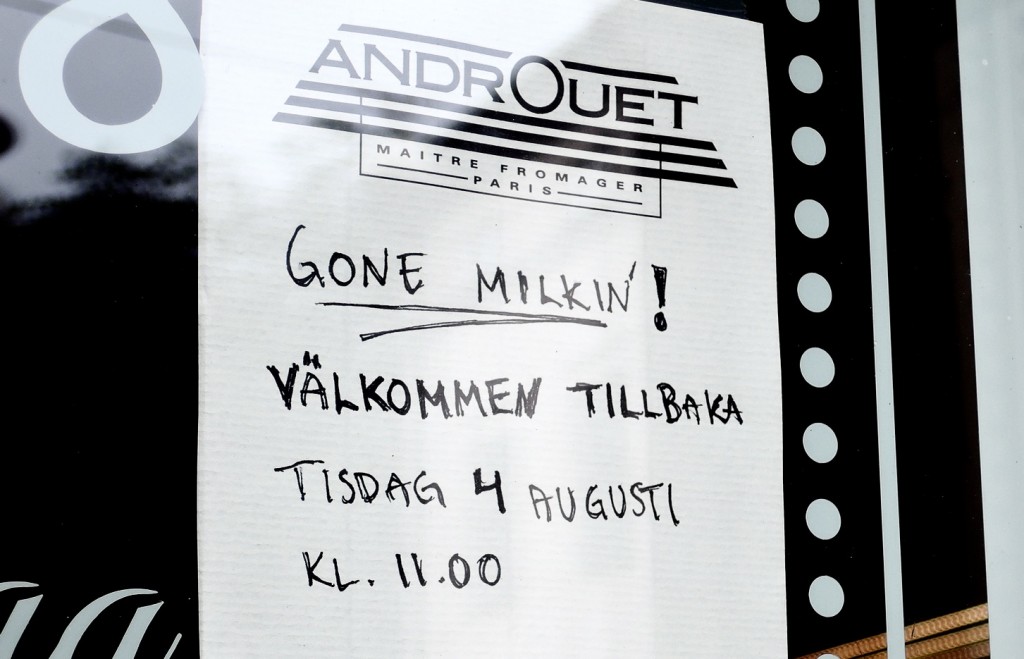 ANDROUET
MAITRE FROMAGER
PARIS
GONE MILKIN'!
VÄLKOMMEN TILLBAKA
TISDAG 4 AUGUSTI
KL. 11.00